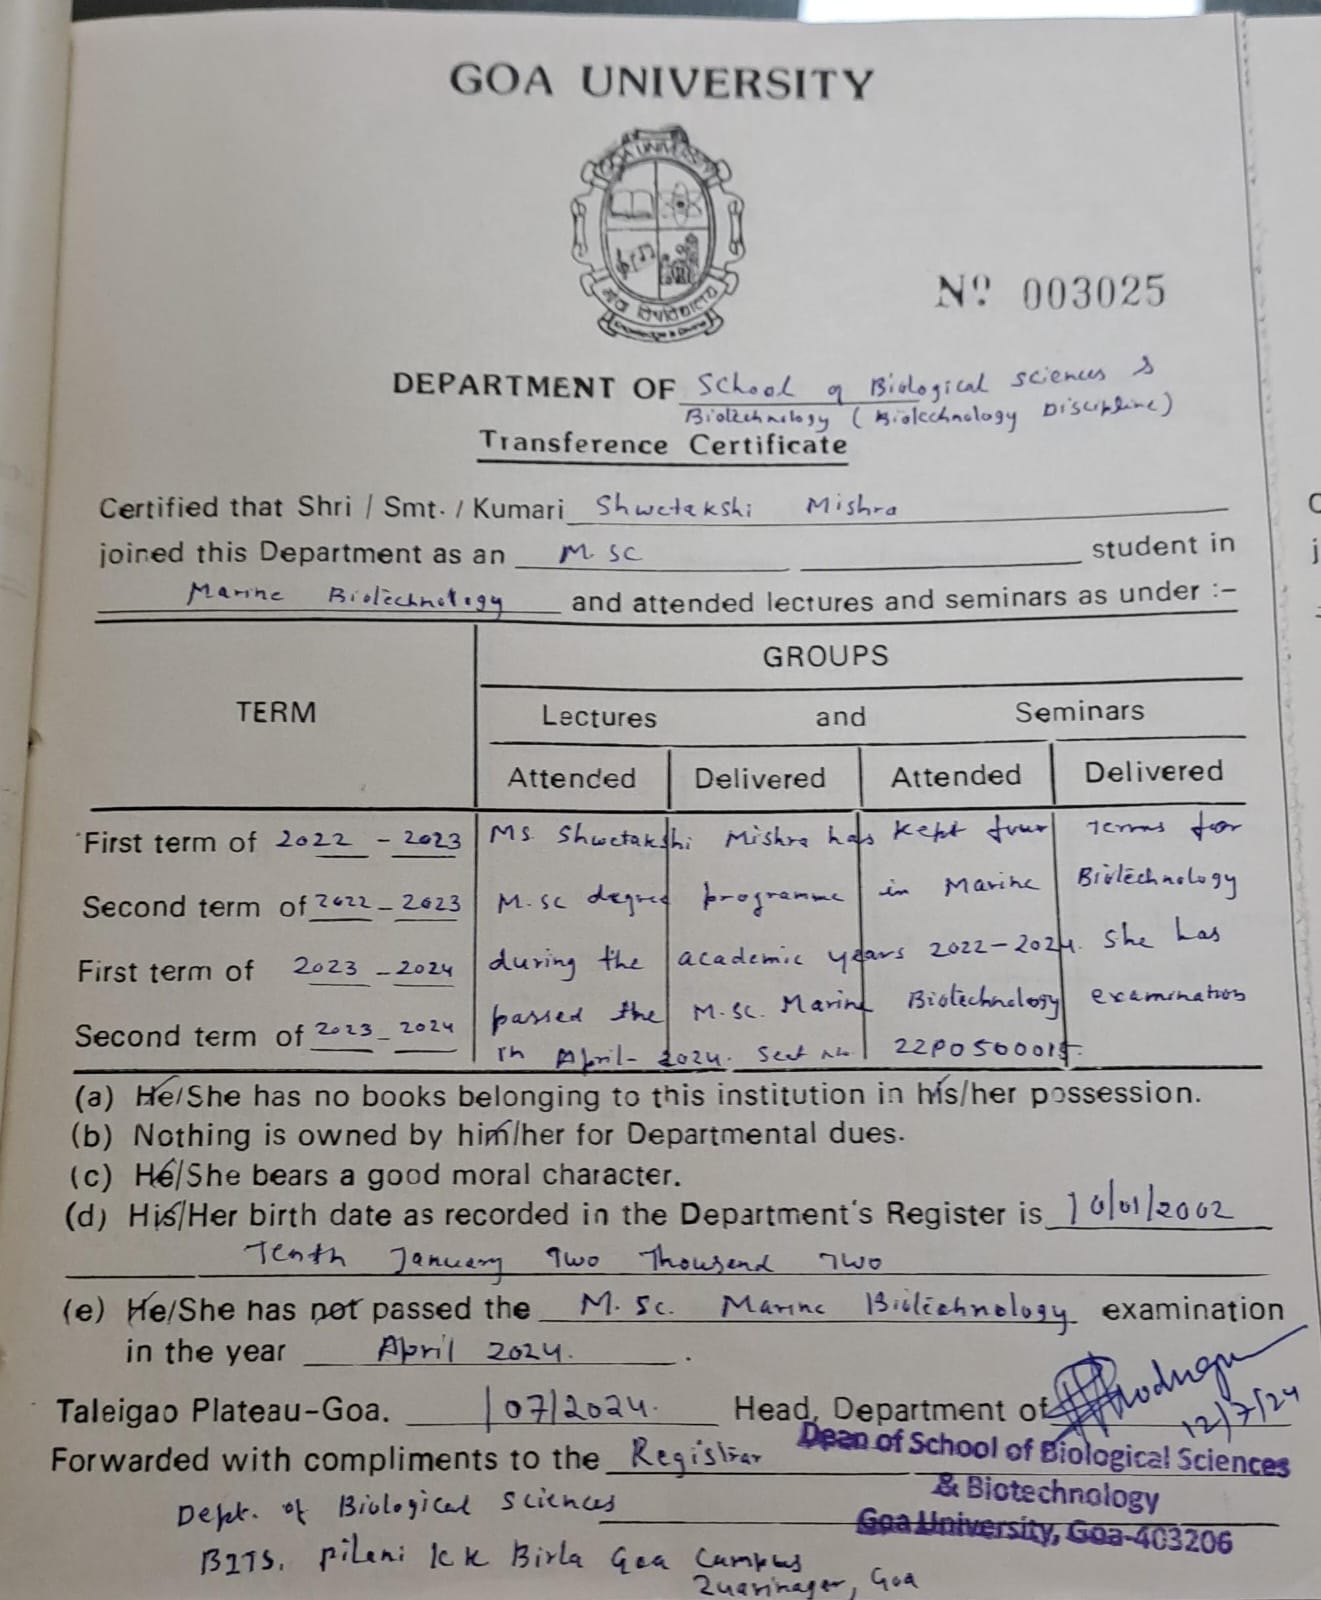 GOA UNIVERSITY
GOA UNIVERSITY
गोंय विश्वविद्यालय
Knowledge is Divine
Nº 003025
DEPARTMENT OF School of Biological Sciences &
Biotechnology (Biotechnology Discipline)
Transference Certificate
Certified that Shri / Smt. / Kumari Shwetakshi Mishra
joined this Department as an M.Sc student in
Marine Biotechnology and attended lectures and seminars as under :–
GROUPS
TERM
Lectures and Seminars
Attended Delivered Attended Delivered
First term of 2022 - 2023 Ms. Shwetakshi Mishra has kept four terms for
Second term of 2022 - 2023 M.Sc degree programme in Marine Biotechnology
First term of 2023 - 2024 during the academic years 2022-2024. She has
Second term of 2023 - 2024 passed the M.Sc. Marine Biotechnology examination
in April - 2024. Seat No. 22P0500015.
(a) He/She has no books belonging to this institution in his/her possession.
(b) Nothing is owned by him/her for Departmental dues.
(c) He/She bears a good moral character.
(d) His/Her birth date as recorded in the Department's Register is 10/01/2002
Tenth January Two Thousand Two
(e) He/She has not passed the M.Sc. Marine Biotechnology examination
in the year April 2024.
Taleigao Plateau-Goa. /07/2024. Head, Department of
12/7/24
Forwarded with compliments to the Registrar
Dean of School of Biological Sciences
& Biotechnology
Goa University, Goa-403206
Dept. of Biological Sciences
BITS, Pilani K K Birla Goa Campus
Zuarinagar, Goa